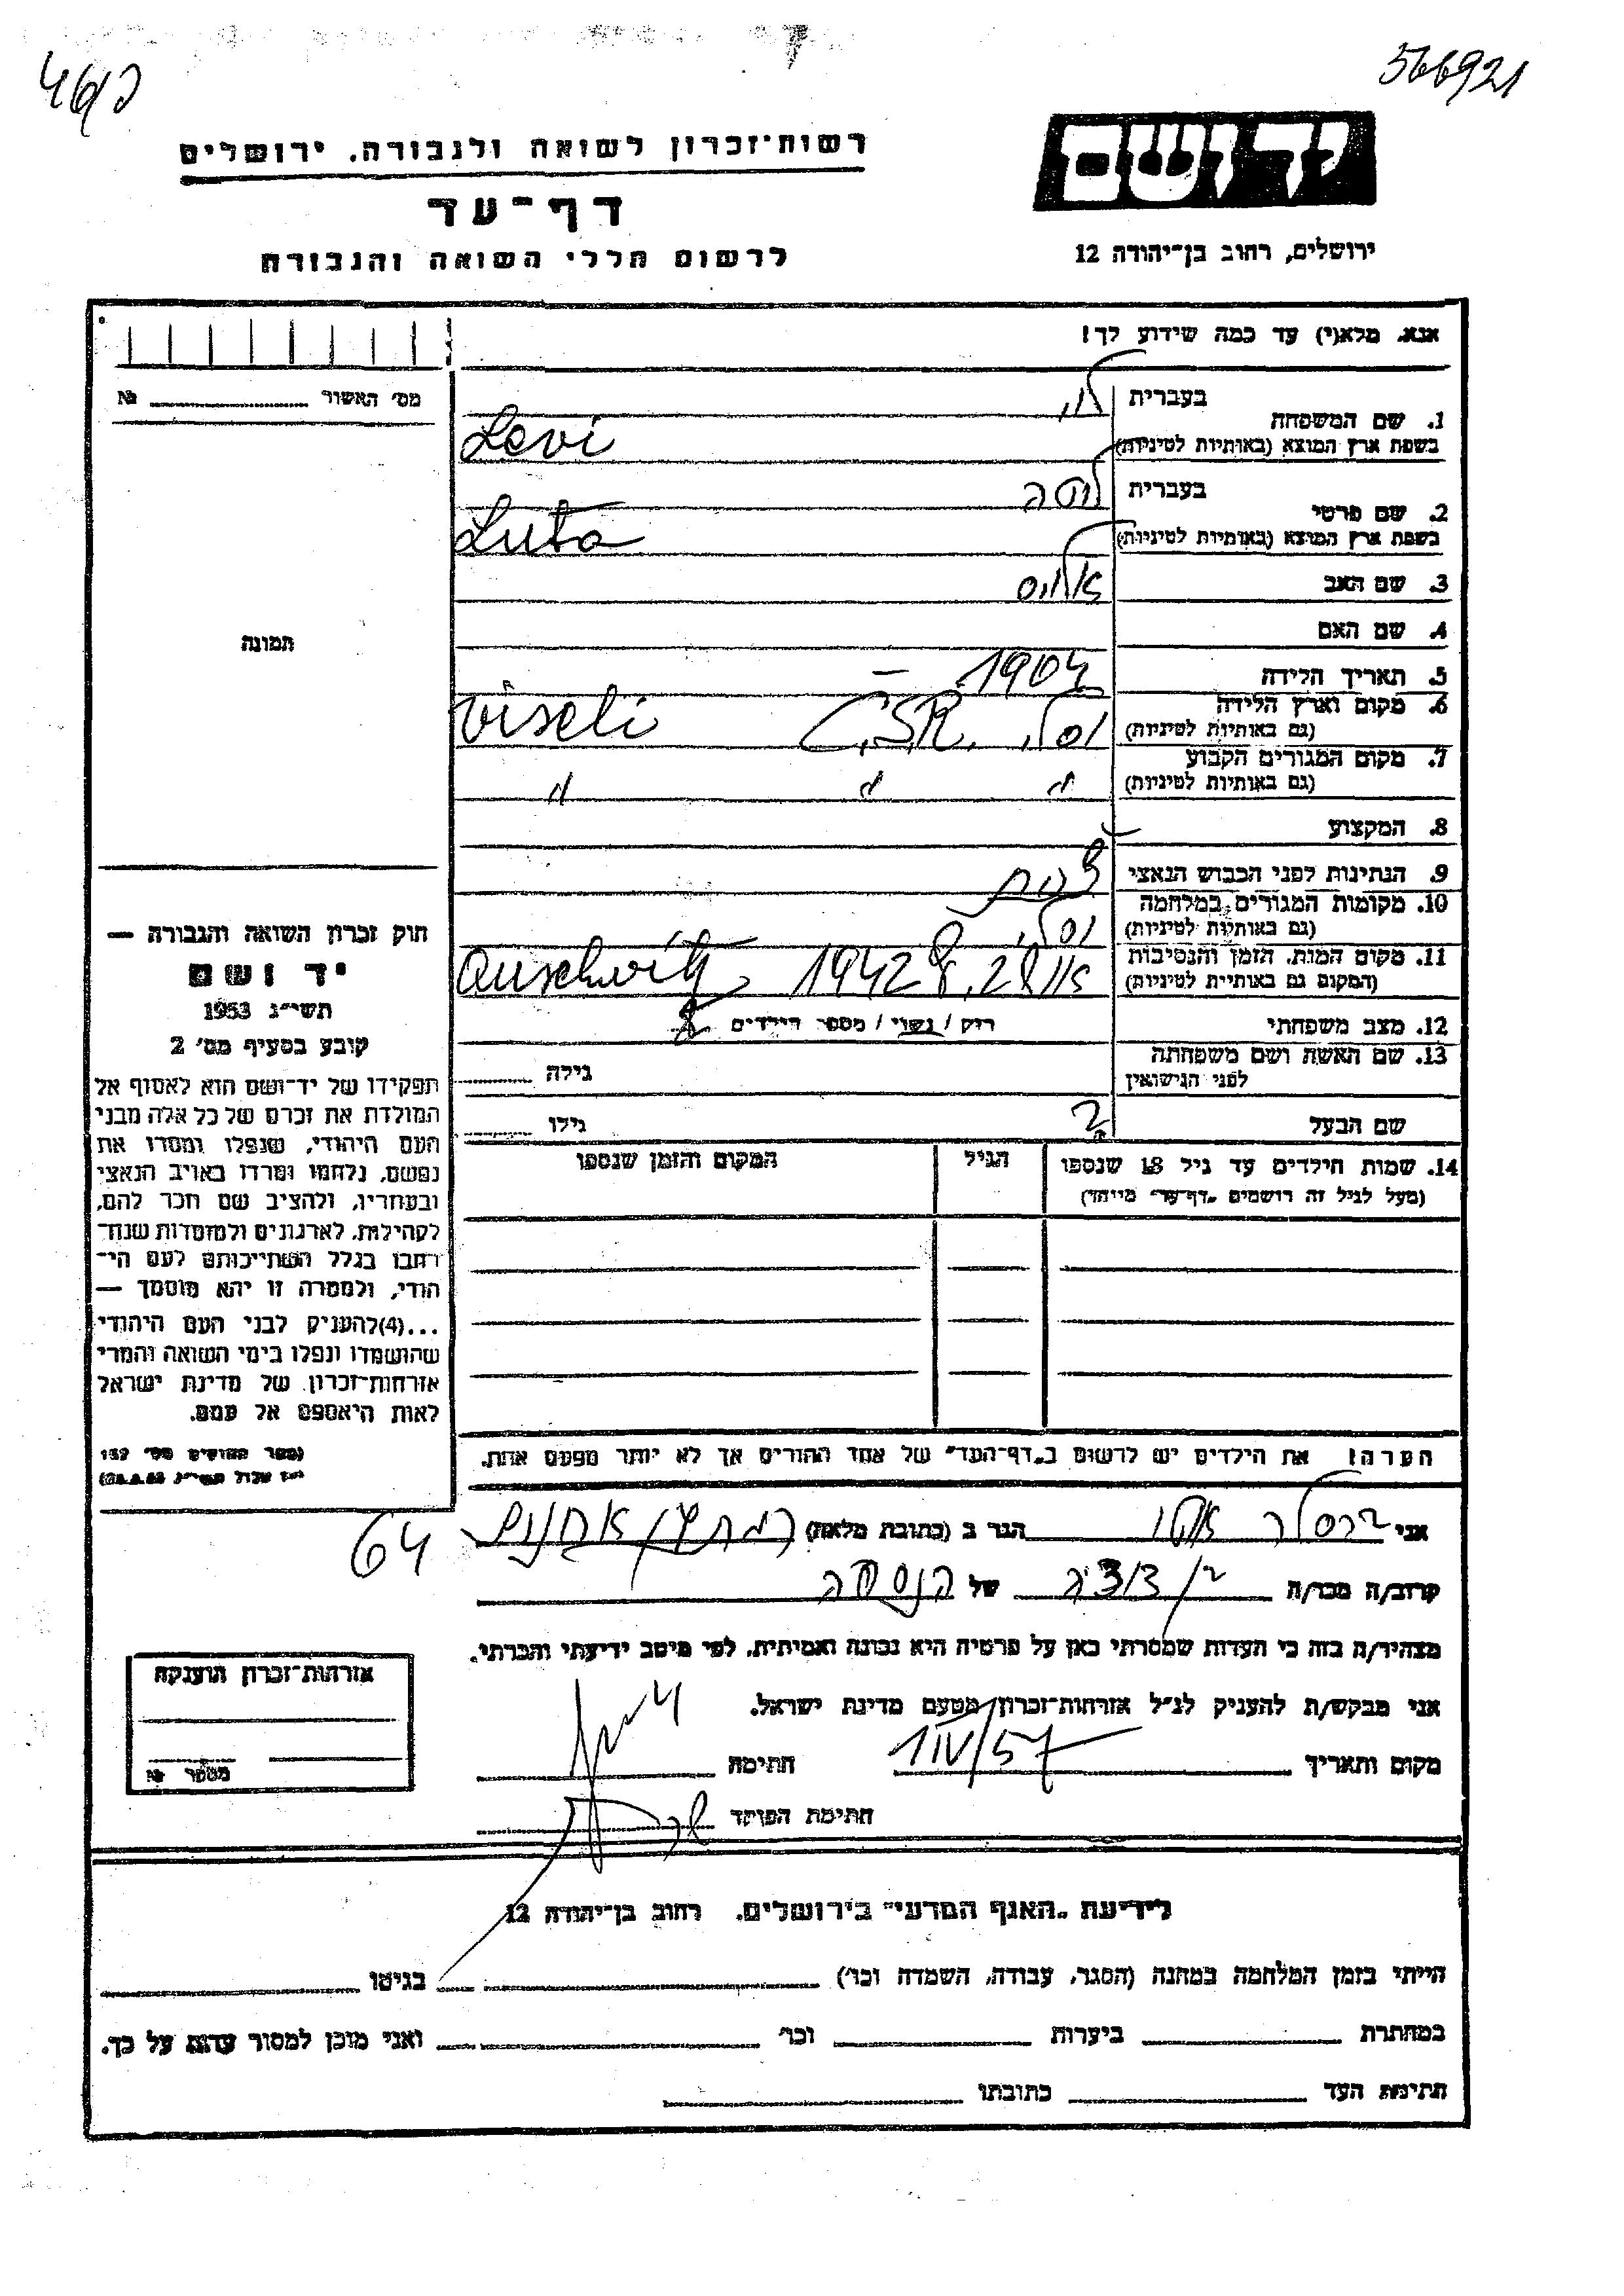 46/כ
566921
יד ושם
רשות־זכרון לשואה ולגבורה, ירושלים
דף־עד
ירושלים, רחוב בן־יהודה 12
לרשום חללי השואה והגבורה
אנא, מלא(י) עד כמה שידוע לך!
מס׳ האשור № 
1. שם המשפחה
בעברית לוי
בשפת ארץ המוצא (באותיות לטיניות) Levi
2. שם פרטי
בעברית לוטה
בשפת ארץ המוצא (באותיות לטיניות) Luta
3. שם האב
4. שם האם
תמונה
5. תאריך הלידה 1904 —
6. מקום וארץ הלידה
(גם באותיות לטיניות) Č.S.R. Viseli
7. מקום המגורים הקבוע
(גם באותיות לטיניות) " " "
8. המקצוע
9. הנתינות לפני הכבוש הנאצי
10. מקומות המגורים במלחמה
(גם באותיות לטיניות)
11. מקום המות, הזמן והנסיבות
(המקום גם באותיות לטיניות) 1942 Auschwitz
12. מצב משפחתי רוק / נשוי / מספר הילדים
13. שם האשה ושם משפחתה
לפני הנישואין גילה
שם הבעל ? גילו
14. שמות הילדים עד גיל 18 שנספו הגיל המקום והזמן שנספו
(מעל לגיל זה רושמים „דף־עד״ מיוחד)
חוק זכרון השואה והגבורה —
יד ושם
תשי״ג 1953
קובע בסעיף מס׳ 2
תפקידו של יד־ושם הוא לאסוף אל
המולדת את זכרם של כל אלה מבני
העם היהודי, שנפלו ומסרו את
נפשם, נלחמו ומרדו באויב הנאצי
ובעוזריו, ולהציב שם וזכר להם,
לקהילות, לארגונים ולמוסדות שנח־
רבו בגלל השתייכותם לעם הי־
הודי, ולמטרה זו יהא מוסמך —
...(4) להעניק לבני העם היהודי
שהושמדו ונפלו בימי השואה והמרי
אזרחות־זכרון של מדינת ישראל
לאות היאספם אל עמם.
(ספר החוקים מס׳ 132
הערה! את הילדים יש לרשום ב„דף־העד״ של אחד ההורים אך לא יותר מפעם אחת.
אני ברסלר הגר ב (כתובת מלאה)
64
קרוב/ה מכר/ה של הנספה
מצהיר/ה בזה כי העדות שמסרתי כאן על פרטיה היא נכונה ואמיתית, לפי מיטב ידיעתי והכרתי.
אני מבקש/ת להעניק לנ״ל אזרחות־זכרון מטעם מדינת ישראל.
מקום ותאריך 1/IV/57 חתימה
חתימת הפוקד
אזרחות־זכרון הוענקה
מספר №
לידיעת „האגף המדעי״ בירושלים, רחוב בן־יהודה 12
הייתי בזמן המלחמה במחנה (הסגר, עבודה, השמדה וכו׳) בגיטו
במחתרת ביערות וכו׳ ואני מוכן למסור עדות על כך.
חתימת העד כתובתו